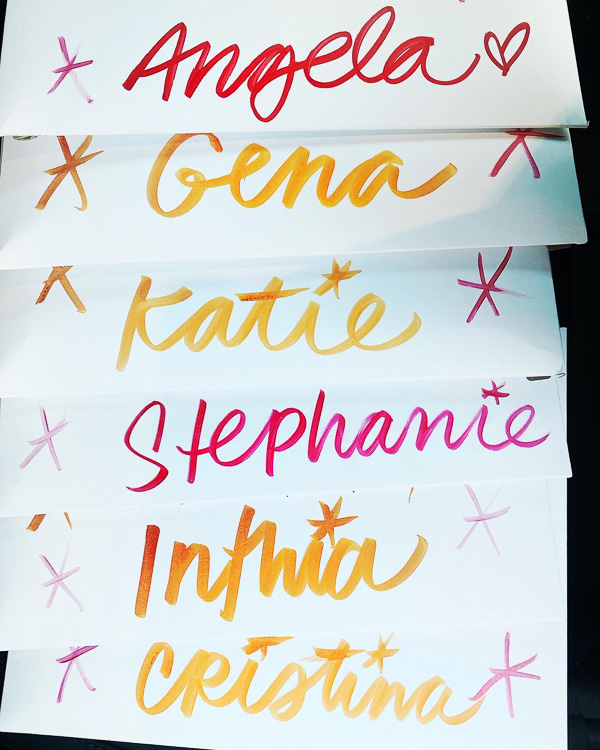 Angela
Gena
Katie
Stephanie
Inthia
CRistina